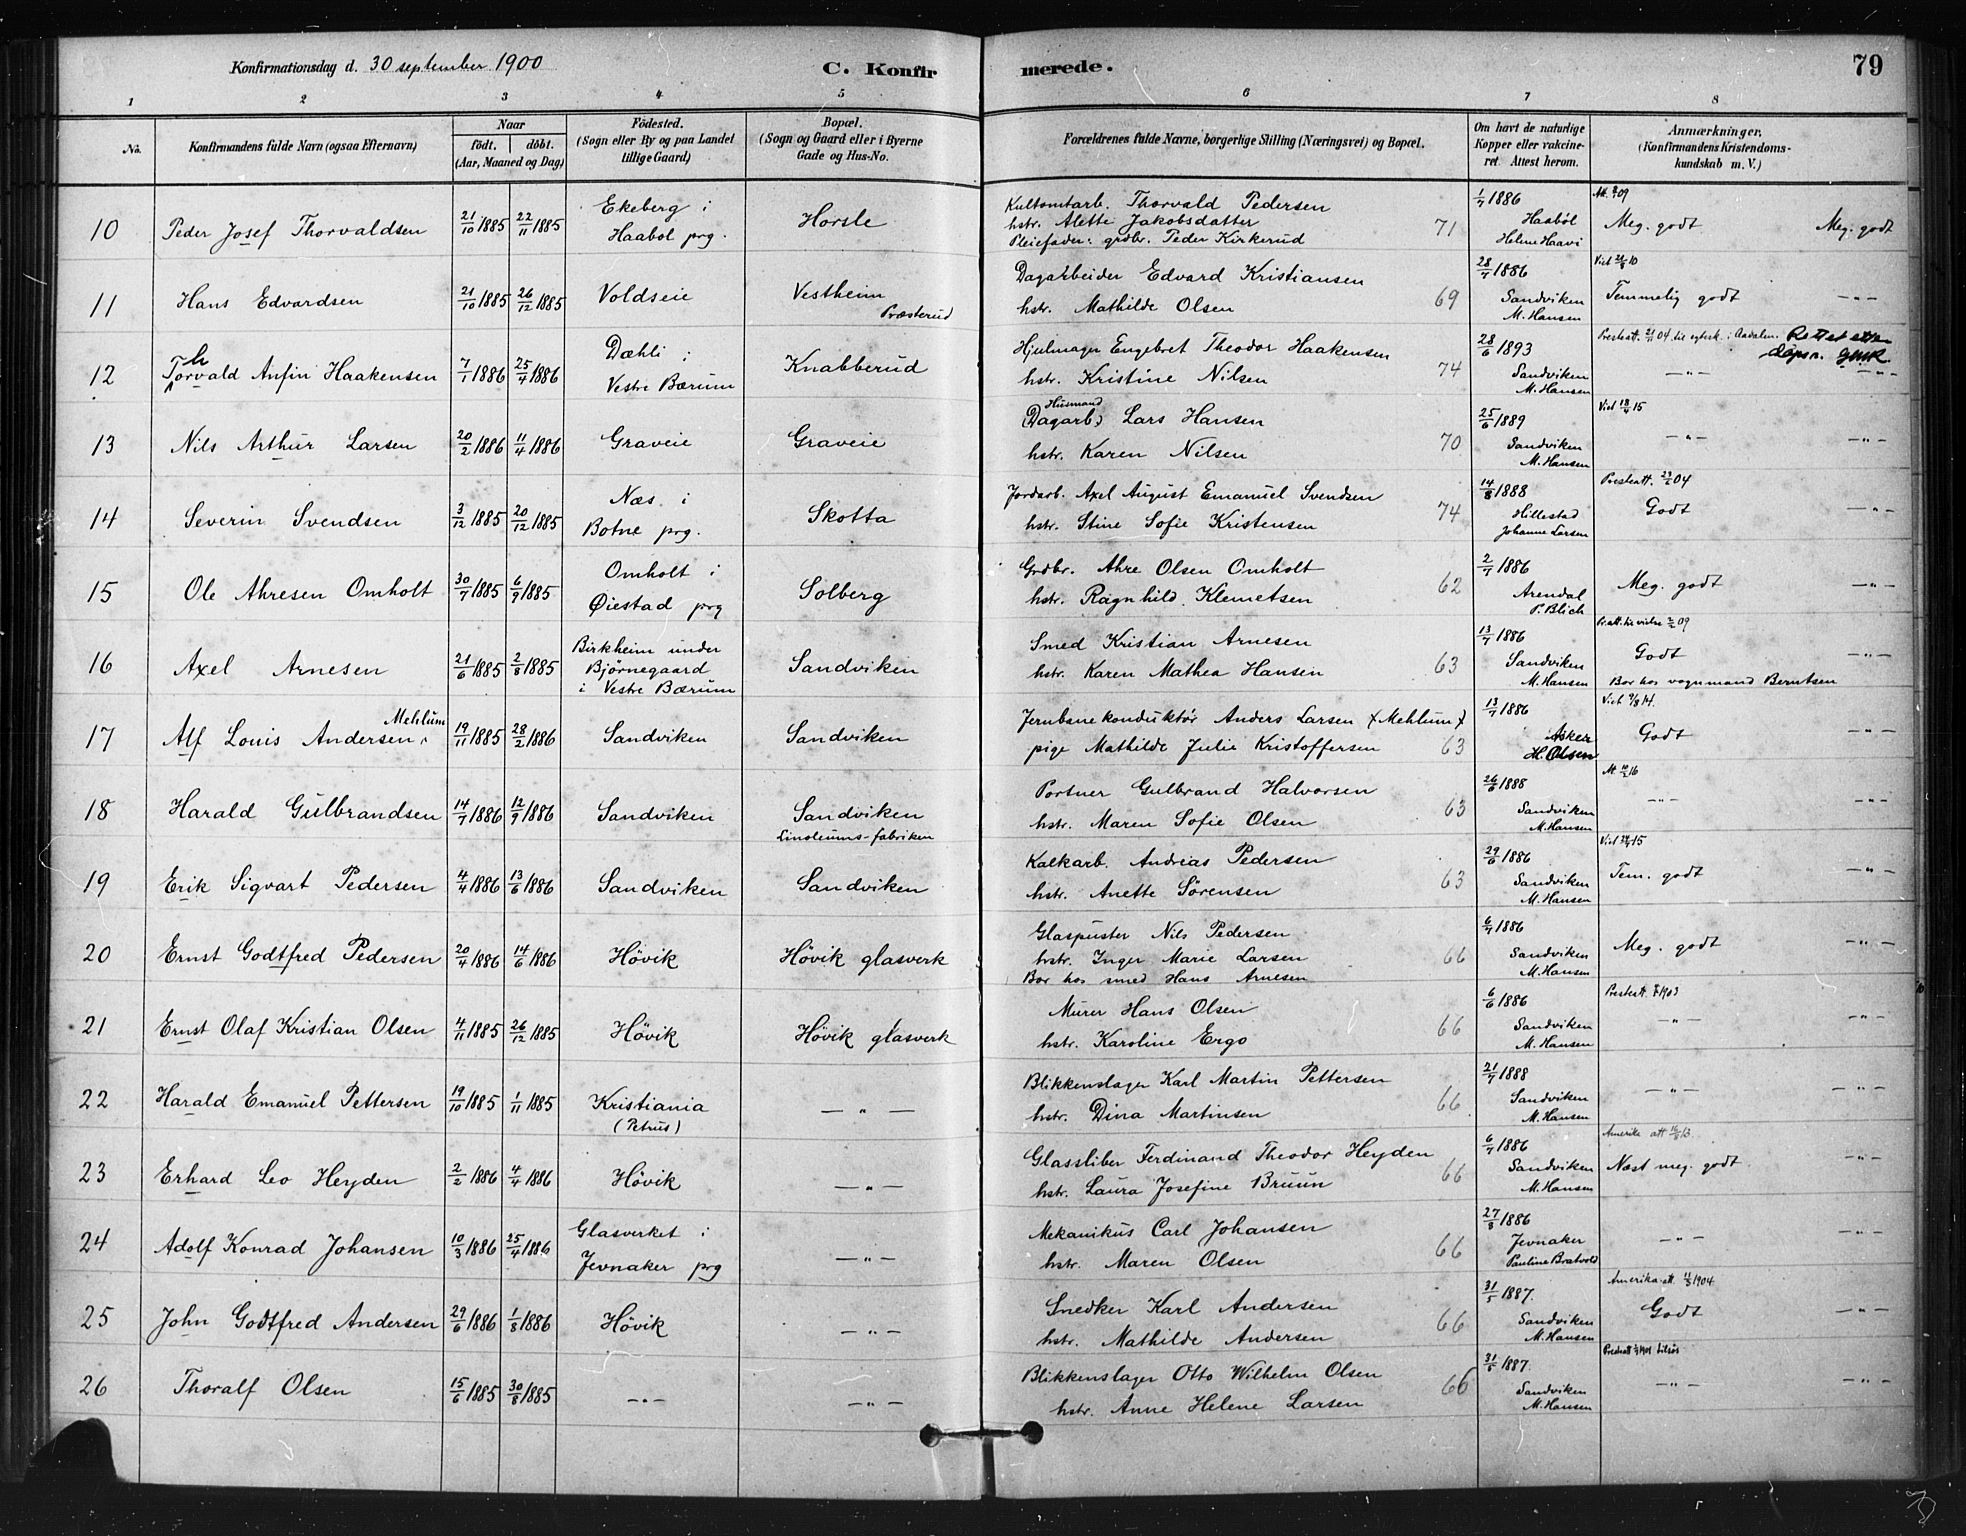 Konfirmationsdag d. 30 september 1900 C. Konfir merede. 79
1 2 3 4 5 6 7 8
No. Konfirmandens fulde Navn (ogsaa Efternavn) Naar födt. döbt. (Aar, Maaned og Dag) Födested. (Sogn eller By og paa Landet tillige Gaard) Bopæl. (Sogn og Gaard eller i Byerne Gade og Hus-No. Forældrenes fulde Navne, borgerlige Stilling (Næringsvei) og Bopæl. Om havt de naturlige Kopper eller vakcineret. Attest herom. Anmærkninger, (Konfirmandens Kristendomskundskab m. V.)
10 Peder Josef Thorvaldsen 21/10 1885 22/11 1885 Ekeberg i Haabøl prg. Horsle
Thorvald Pedersen 1/7 1886
hstr. Alette Jakobsdatter 71 Haabøl Meg. godt Meg. godt
Pleiefader: grdbr. Peder Kirkerud Helene Haavi
11 Hans Edvardsen 21/10 1885 26/12 1885 Voldseie Vestheim Præsterud
Dagarbeider Edvard Kristiansen 28/7 1886
hstr. Mathilde Olsen 69 Sandviken Temmelig godt —„—
M. Hansen
12 Thorvald Anfin Haakensen 7/1 1886 25/4 1886 Dæhli i Vestre Bærum Knabberud
Hjulmager Engebret Theodor Haakensen 28/6 1893 Rettet etter dåpsn.
hstr. Kristine Nilsen 74 Sandviken —„— —„—
M. Hansen
13 Nils Arthur Larsen 20/2 1886 11/4 1886 Graveie Graveie
Husmand
(Dagarb.) Lars Hansen 25/6 1889
hstr. Karen Nilsen 70 Sandviken —„— —„—
M. Hansen
14 Severin Svendsen 3/12 1885 20/12 1885 Næs i Botne prg. Skotta
Jordarb. Axel August Emanuel Svendsen 14/8 1888
hstr. Stine Sofie Kristensen 74 Hillestad Godt —„—
Johanne Larsen
15 Ole Ahresen Omholt 30/7 1885 6/9 1885 Omholt i Øiestad prg Solberg
Grdbr. Ahre Olsen Omholt 2/7 1886
hstr. Ragnhild Klemetsen 62 Arendal Meg. godt —„—
P. Blich
16 Axel Arnesen 21/6 1885 2/8 1885 Birkheim under Bjørnegaard i Vestre Bærum Sandviken
Smed Kristian Arnesen 13/7 1886
hstr. Karen Mathea Hansen 63 Sandviken Godt —„—
M. Hansen Bor hos vognmand Berntsen
17 Alf Louis Andersen Mehlum 19/11 1885 28/2 1886 Sandviken Sandviken
Jernbanekonduktør Anders Larsen (Mehlum) 13/7 1886
pige Mathilde Julie Kristoffersen 63 Asker Godt —„—
H. Olsen
18 Harald Gulbrandsen 14/7 1886 12/9 1886 Sandviken Sandviken Linoleums-fabriken
Portner Gulbrand Halvorsen 26/6 1888
hstr. Maren Sofie Olsen 63 Sandviken —„— —„—
M. Hansen
19 Erik Sigvart Pedersen 4/4 1886 13/6 1886 Sandviken Sandviken
Kalkarb. Andreas Pedersen 29/6 1886
hstr. Anette Sörensen 63 Sandviken Tem. godt —„—
M. Hansen
20 Ernst Godtfred Pedersen 20/4 1886 14/6 1886 Hövik Hövik glasverk
Glaspuster Nils Pedersen 6/7 1886
hstr. Inger Marie Larsen 66 Sandviken Meg. godt —„—
Bor hos smed Hans Arnesen M. Hansen
21 Ernst Olaf Kristian Olsen 4/11 1885 26/12 1885 Hövik Hövik glasverk
Murer Hans Olsen 6/6 1886
hstr. Karoline Ergo 66 Sandviken —„— —„—
M. Hansen
22 Harald Emanuel Pettersen 19/10 1885 1/11 1885 Kristiania (Petrus) —„—
Blikkenslager Karl Martin Pettersen 21/7 1888
hstr. Dina Martinsen 66 Sandviken —„— —„—
M. Hansen
23 Erhard Leo Heyden 2/2 1886 4/4 1886 Hövik —„—
Glassliber Ferdinand Theodor Heyden 6/7 1886
hstr. Laura Josefine Bruun 66 Sandviken Næst meg. godt —„—
M. Hansen
24 Adolf Konrad Johansen 10/3 1886 25/4 1886 Glasverket i Jevnaker prg —„—
Mekanikus Carl Johansen 27/8 1886
hstr. Maren Olsen 66 Jevnaker —„— —„—
Pauline Bratvold
25 John Godtfred Andersen 29/6 1886 1/8 1886 Hövik —„—
Snedker Karl Andersen 31/5 1887. Amerika att. 11/5 1904.
hstr. Mathilde Andersen 66 Sandviken Godt —„—
M. Hansen
26 Thoralf Olsen 15/6 1885 30/8 1885 —„— —„—
Blikkenslager Otto Wilhelm Olsen 31/5 1887.
hstr. Anne Helene Larsen 66 Sandviken —„— —„—
M. Hansen